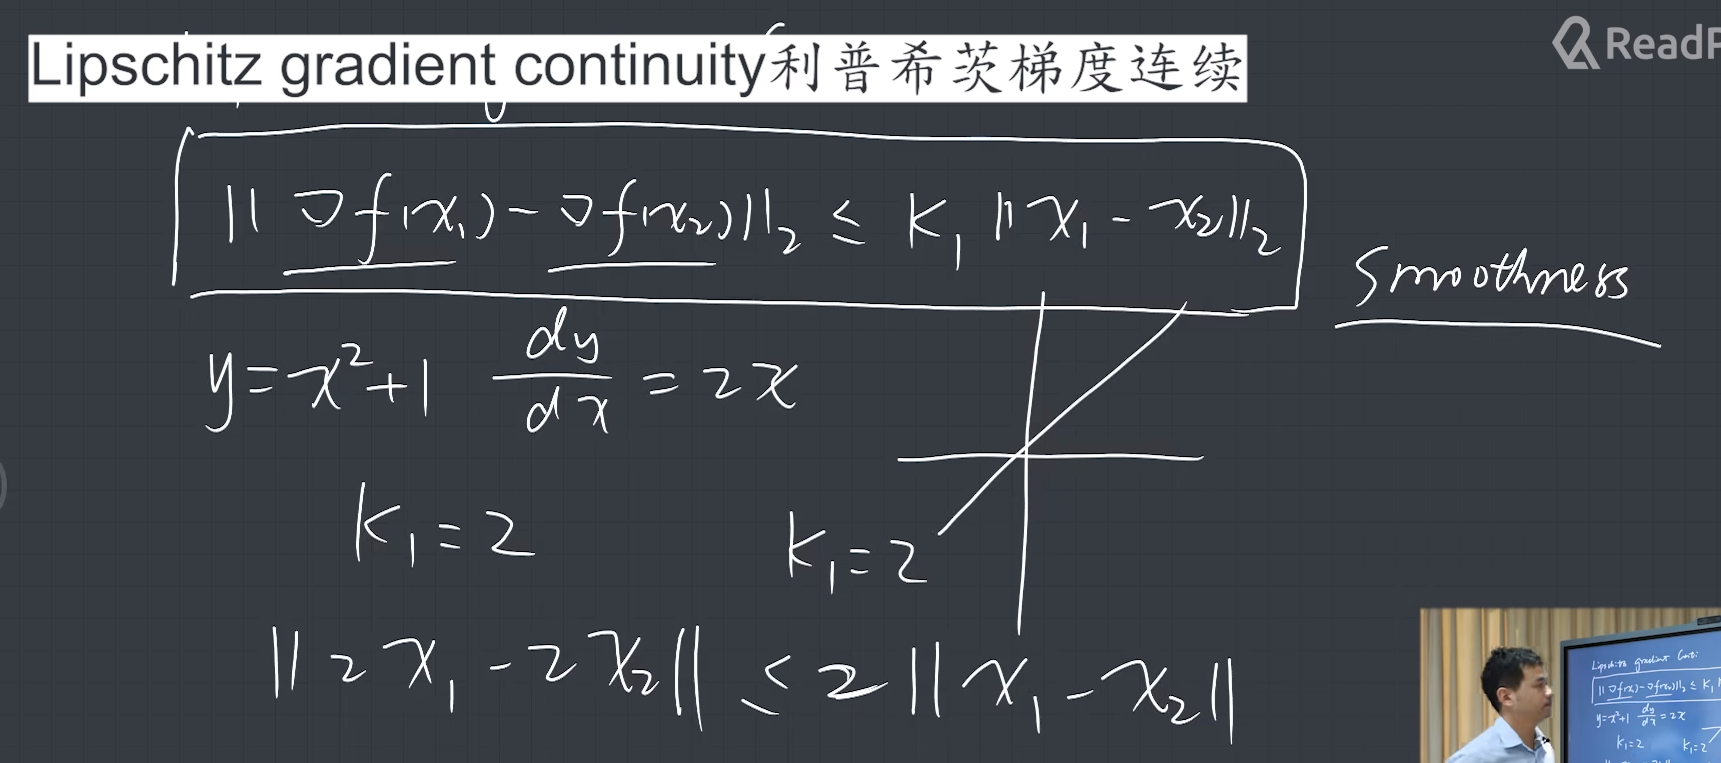 Lipschitz gradient continuity利普希茨梯度连续
ReadP
||∇f(x₁)-∇f(x₂)||₂ ≤ K₁||x₁-x₂||₂
Smoothness
y=x²+1 dy/dx=2x
K₁=2 K₁=2
||2x₁-2x₂|| ≤ 2||x₁-x₂||
Lipschitz gradient Conti
||∇f(x₁)-∇f(x₂)||₂ ≤ K₁||
y=x²+1 dy/dx=2x
K₁=2 K₁=2